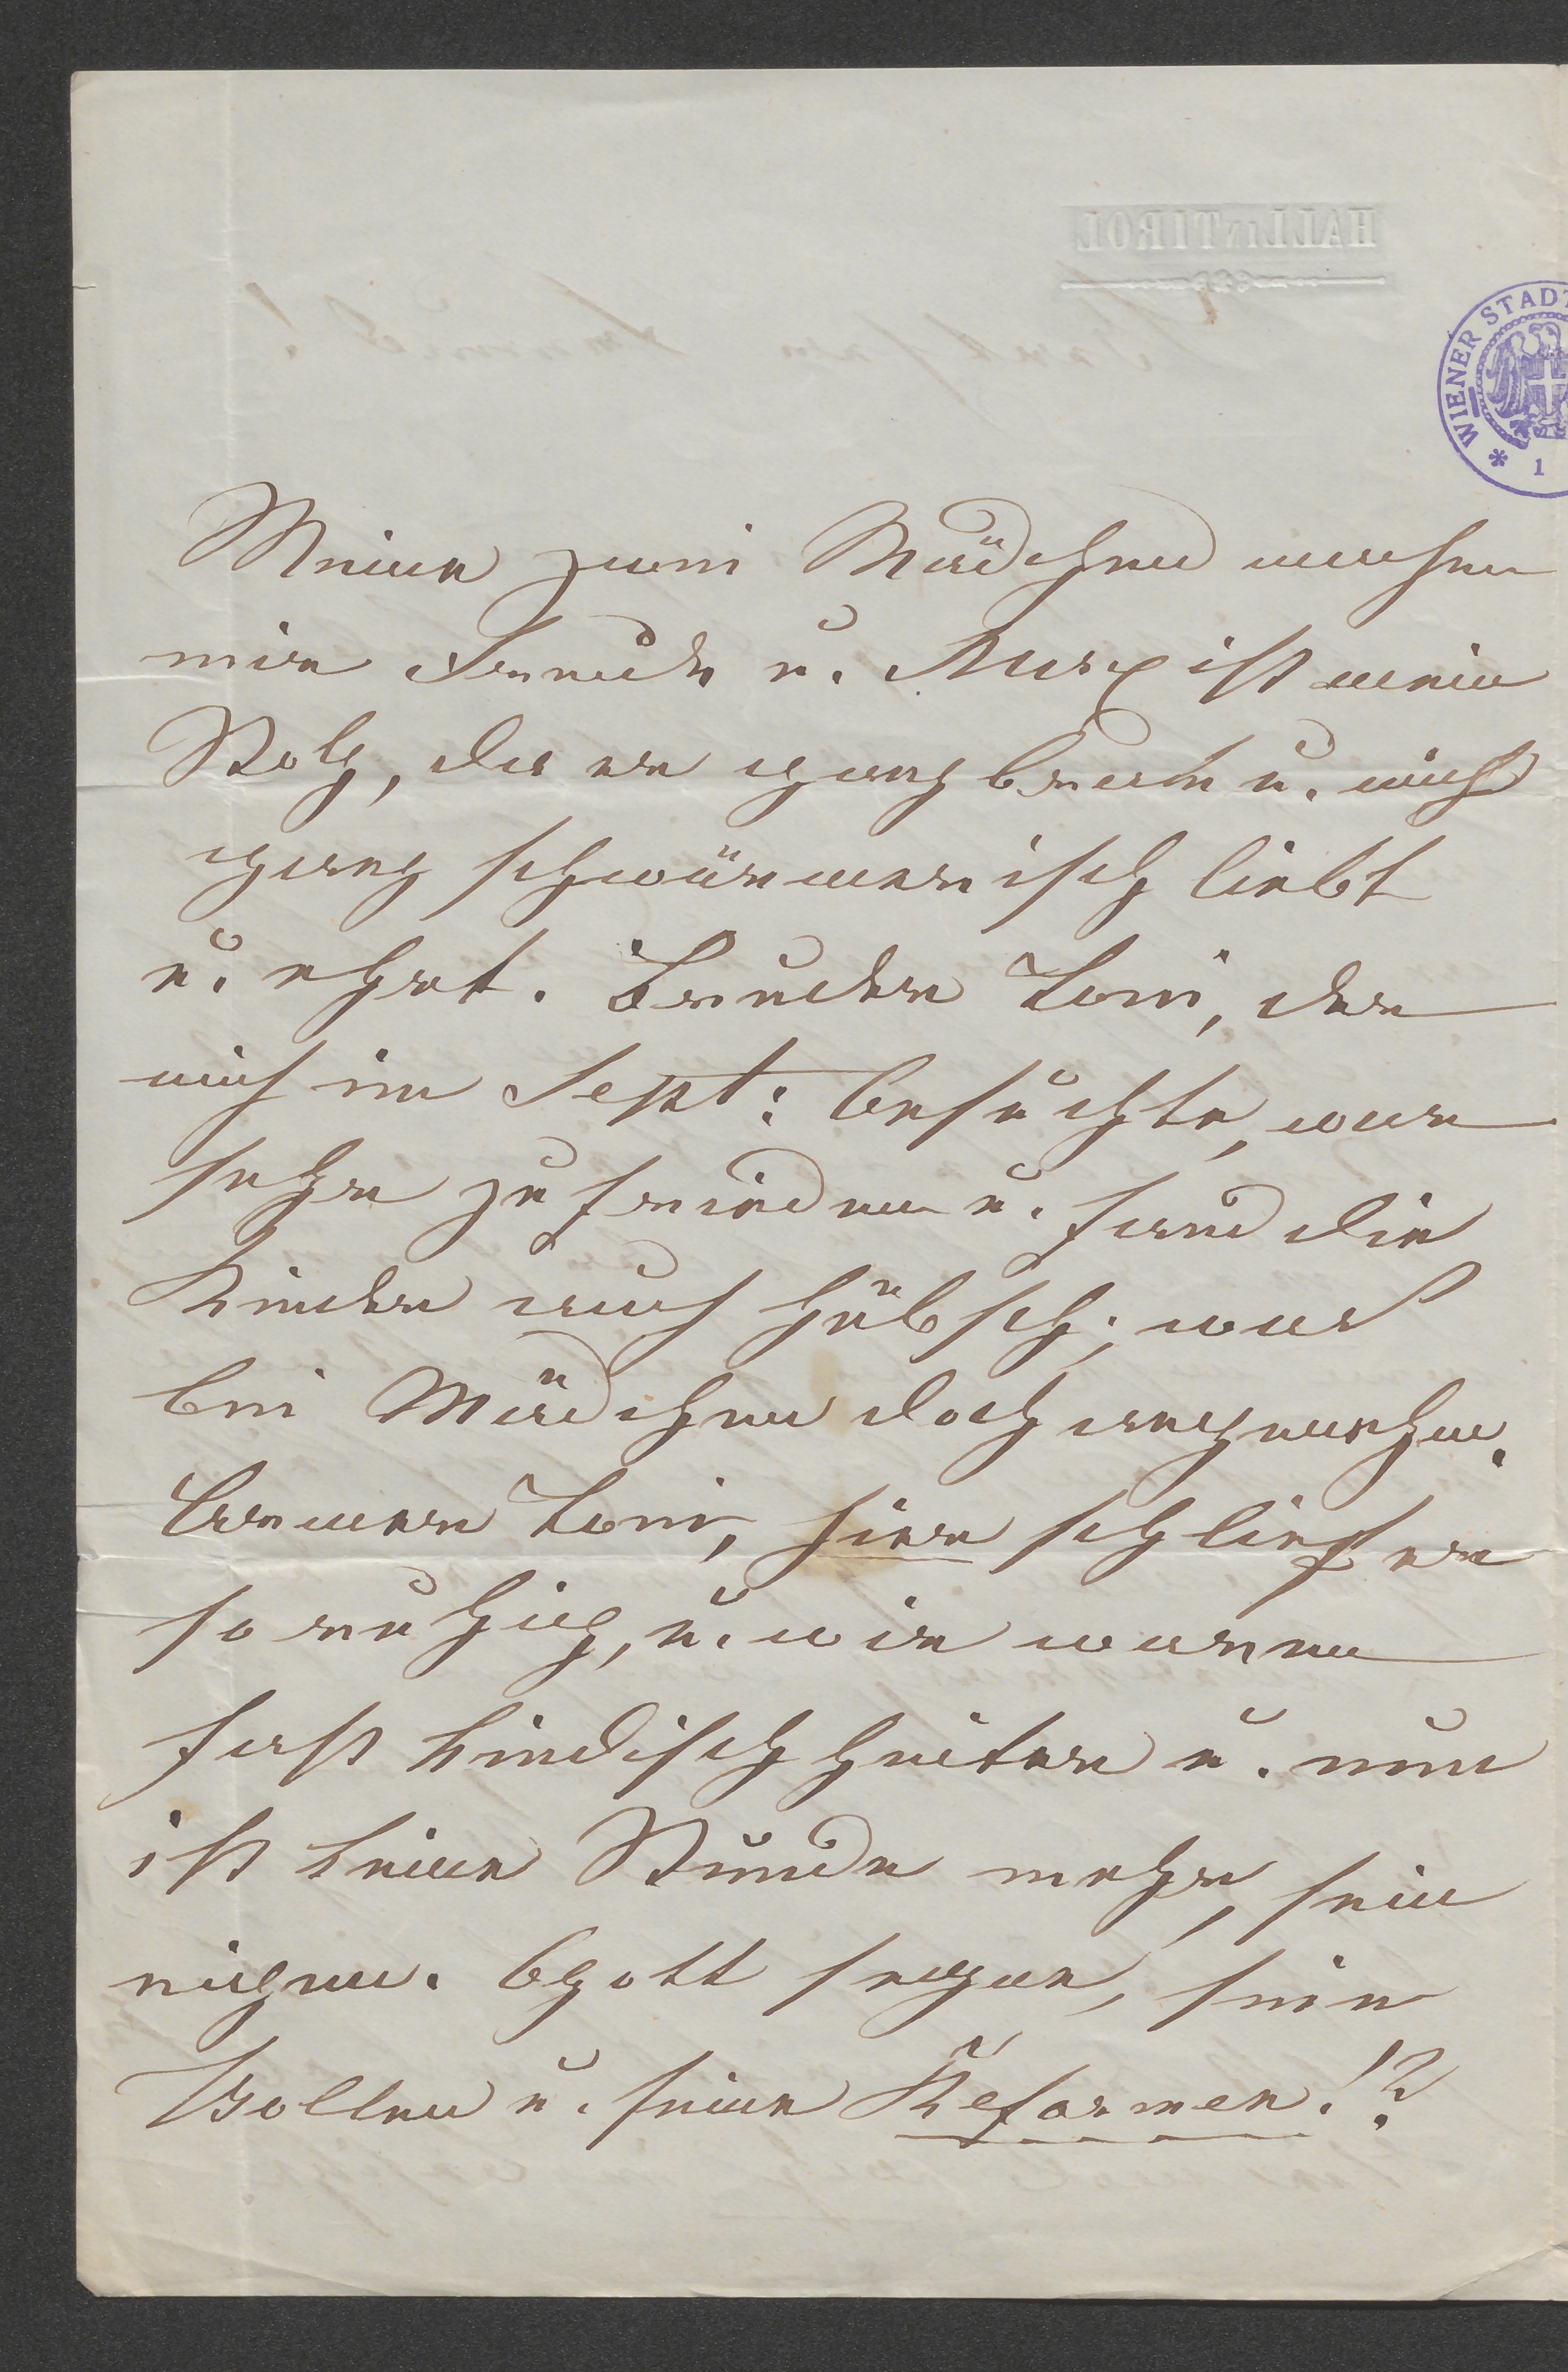 HALL IN TIROL
WIENER STADT
* 1
Meine zwei Mädchen machen
mir Freude u. Max ist mein
Stolz, da er ganz brav u. mich
ganz schwärmerisch liebt
u. ehrt. Bruder Toni, der
mich im Sept: besuchte, war
sehr zufrieden u. fand die
Kinder auch hübsch; was
bei Mädchen doch angenehm.
Armer Toni, hier schlief er
so ruhig, u. wir waren
fast kindisch heiter u. nun
ist keine Stunde mehr, sein
eigen. Gott segne, sein
Wollen u. seine Reformen!?